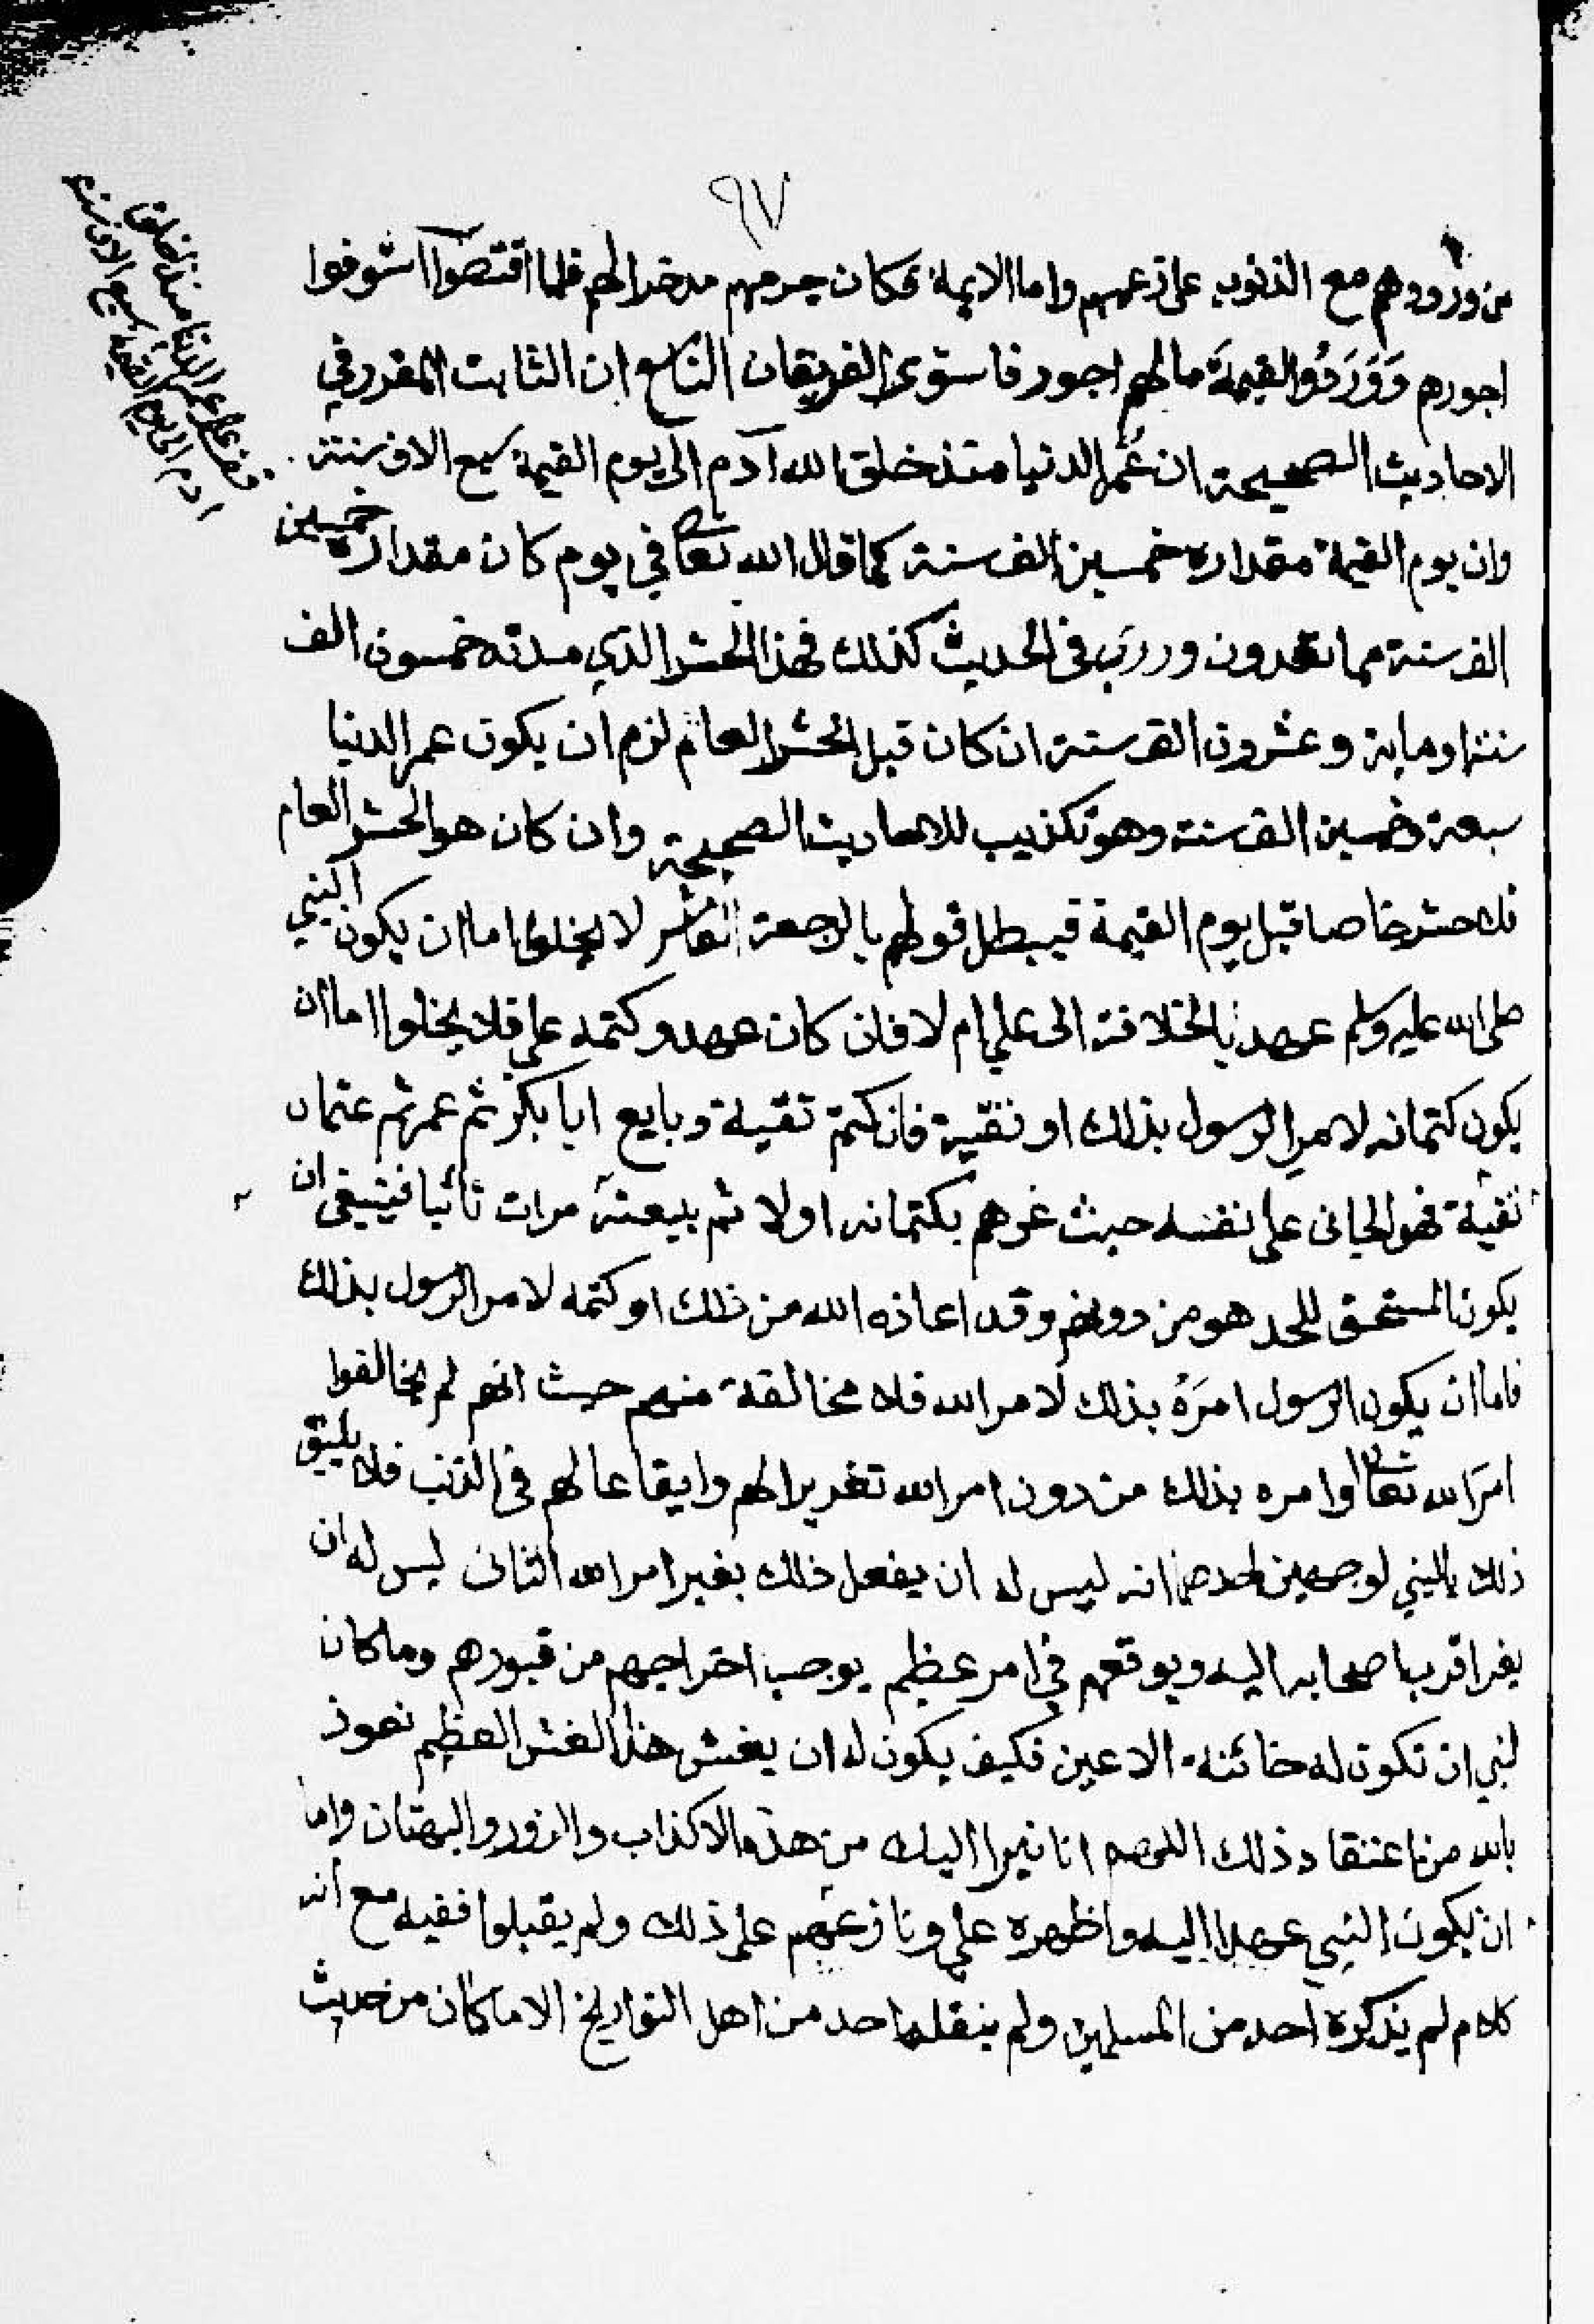 ٩٧
من ورودهم مع الذنوب على زعمهم واما الايمة فكان جرمهم مدخرا لهم فلما اقتصوا استوفوا
اجورهم وَوَرَدُوا القيمةَ ما لهم اجور فاستوى الفريقان التاسع ان الثابت المقرر في
الاحاديث الصحيحة ان عُمر الدنيا منذ خلق الله آدم الى يوم القيمة سبع الاف سنة
وان يوم القيمة مقداره خمسين الف سنة كما قال الله تعا في يوم كان مقداره خمسين
الف سنة مما تعدون وورد في الحديث كذلك فهذا الحشر الذي مدته خمسون الف
سنة او ماية وعشرون الف سنة ان كان قبل الحشر العام لزم ان يكون عمر الدنيا
سبعة وخمسين الف سنة وهو تكذيب للاحاديث الصحيحة وان كان هو الحشر العام
فلا حشر خاصا قبل يوم القيمة فيبطل قولهم بالرجعة العاشر لا يخلوا اما ان يكون النبي
صلى الله عليه وسلم عهد بالخلافة الى علي ام لا فان كان عهد وكتمه علي فلا يخلوا اما ان
يكون كتمانه لامر الرسول بذلك او تقية فان كتمه تقية وبايع ابا بكر ثم عمر ثم عثمان
تقية فهو الجانى على نفسه حيث غرهم بكتمانه اولا ثم ببيعته مرات ثانيا فينبغي ان
يكون المستحق للحد هو من دونهم وقد اعاذه الله من ذلك او كتمه لامر الرسول بذلك
فاما ان يكون الرسول امرَهُ بذلك لامر الله فلا مخالفة منهم حيث انهم لم يخالفوا
امرَ الله تعالى او امره بذلك من دون امر الله تغريرا لهم وايقاعا لهم في الذنب فلا يليق
ذلك بالنبي لوجهين احدهما انه ليس له ان يفعل ذلك بغير امر الله الثانى ليس له ان
يغر اقرب اصحابه اليه ويوقعهم في امر عظيم يوجب اخراجهم من قبورهم وما كان
لنبي ان تكون له خائنة الاعين فكيف يكون له ان يغش هذا الغش العظيم نعوذ
بالله من اعتقاد ذلك اللهم انا نبرا اليك من هذه الاكذاب والزور والبهتان واما
ان يكون النبي عهد اليه واظهره علي ونازعهم على ذلك ولم يقبلوا ففيه مع انه
كلام لم يذكره احد من المسلمين ولم ينقله احد من اهل التواريخ الا ما كان من حديث
قف على عمر الدنيا منذ خلق
ادم الى يوم القيمة سبع الاف سنة